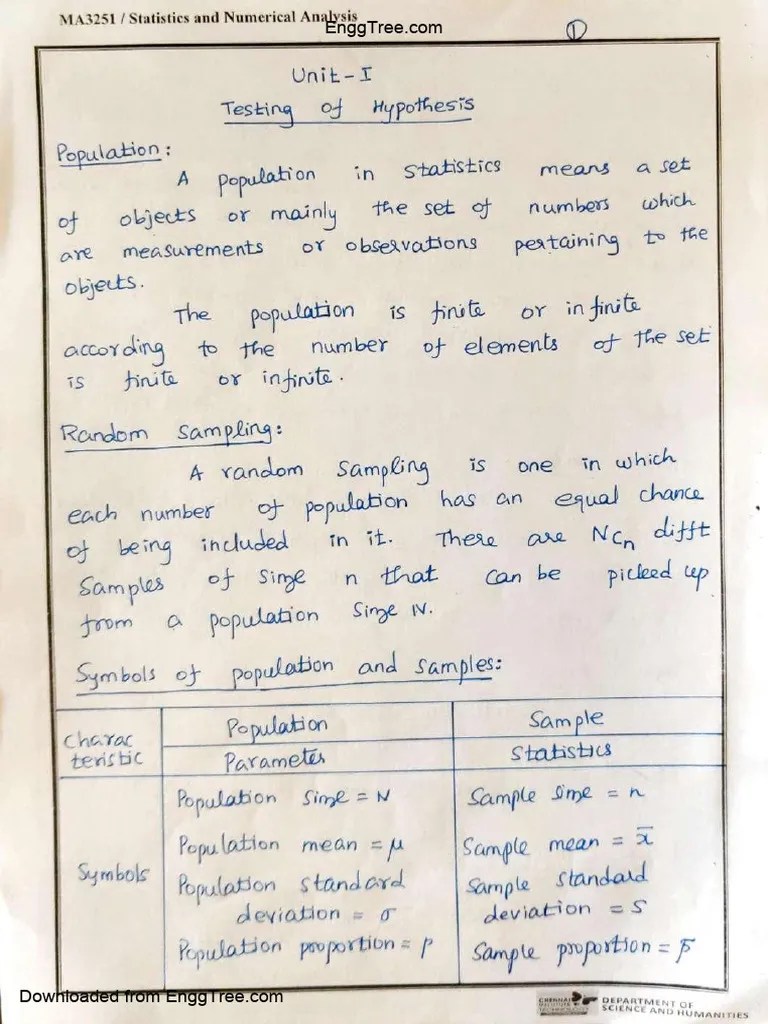 MA3251 / Statistics and Numerical Analysis
EnggTree.com
1
Unit-I
Testing of Hypothesis
Population:
A population in statistics means a set
of objects or mainly the set of numbers which
are measurements or observations pertaining to the
objects.
The population is finite or infinite
according to the number of elements of the set
is finite or infinite.
Random Sampling:
A random sampling is one in which
each number of population has an equal chance
of being included in it. There are NCn difft
Samples of size n that can be picked up
from a population size N.
Symbols of population and samples:
Charac
teristic
Population
Sample
Parameter
Statistics
Symbols
Population size = N
Sample size = n
Population mean = μ
Sample mean = x̄
Population standard
deviation = σ
Sample standard
deviation = s
Population proportion = p
Sample proportion = p̄
Downloaded from EnggTree.com
CHENNAI
INSTITUTE
TECHNOLOGY
DEPARTMENT OF
SCIENCE AND HUMANITIES